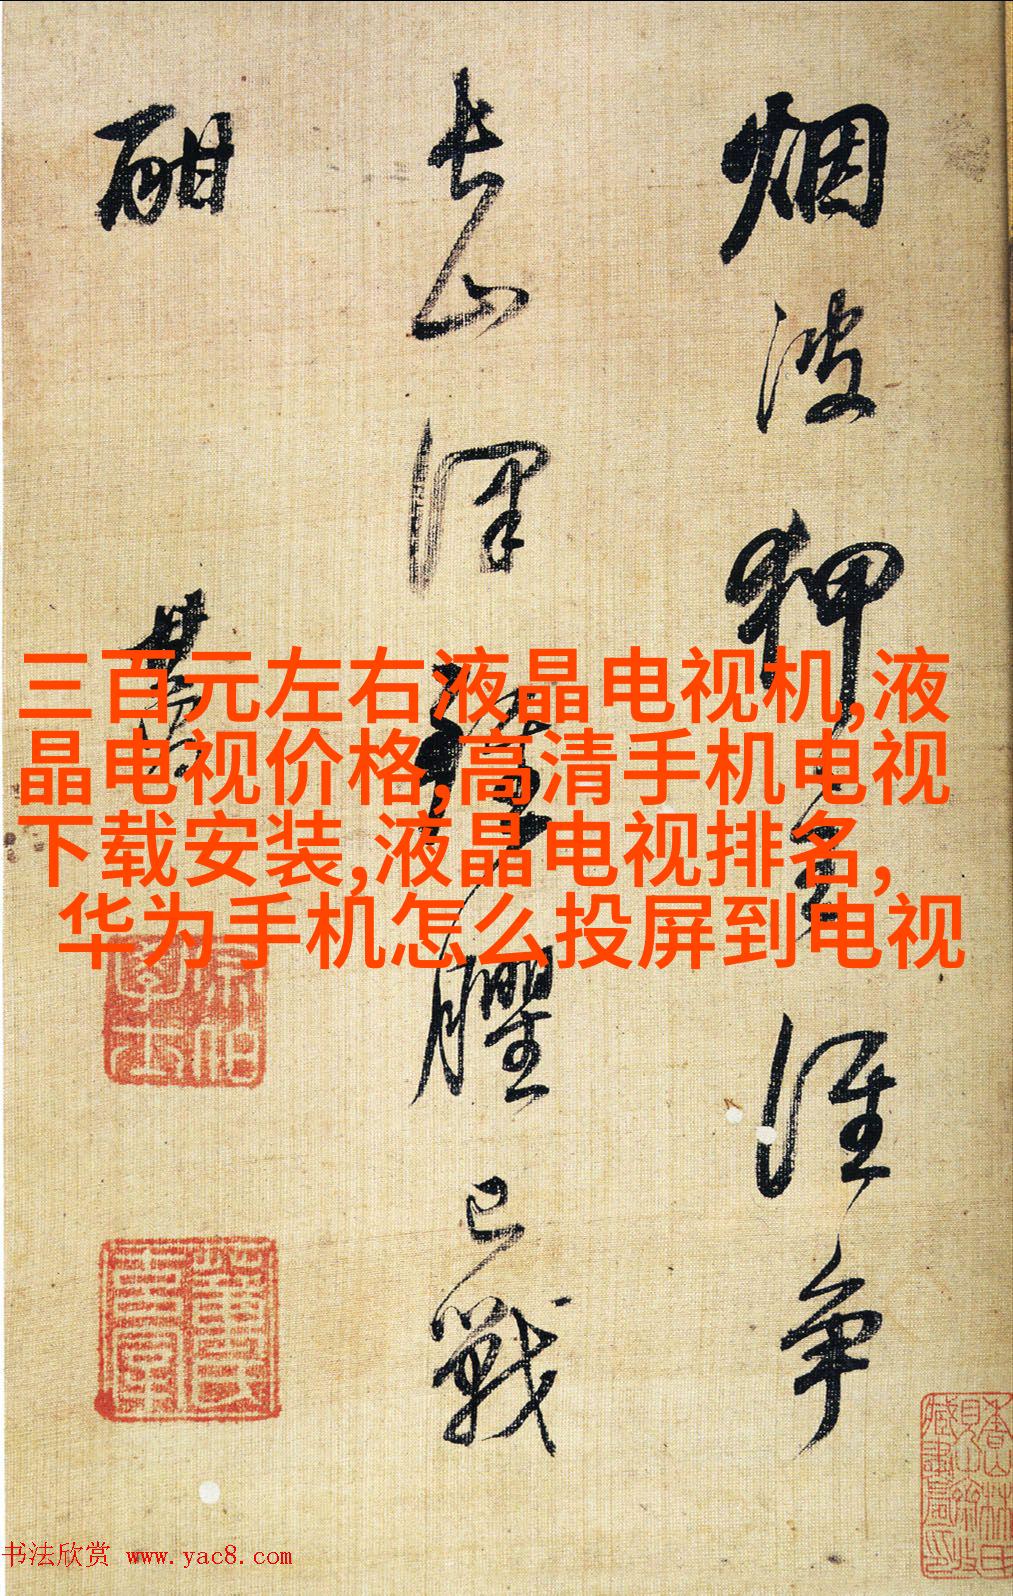 烟波狎主誰争
長山澤臞已戰
酣
三百元左右液晶电视机,液
晶电视价格,高清手机电视
下载安装,液晶电视排名,
华为手机怎么投屏到电视
书法欣赏 www.yac8.com